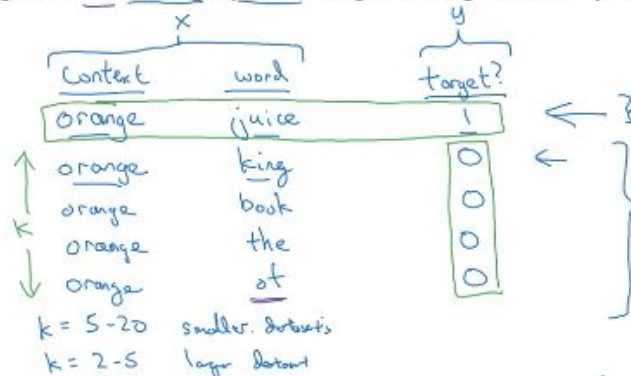 x y
Context word target?
orange juice 1
orange king 0
orange book 0
orange the 0
orange of 0
k
k = 5-20 smaller datasets
k = 2-5 larger dataset